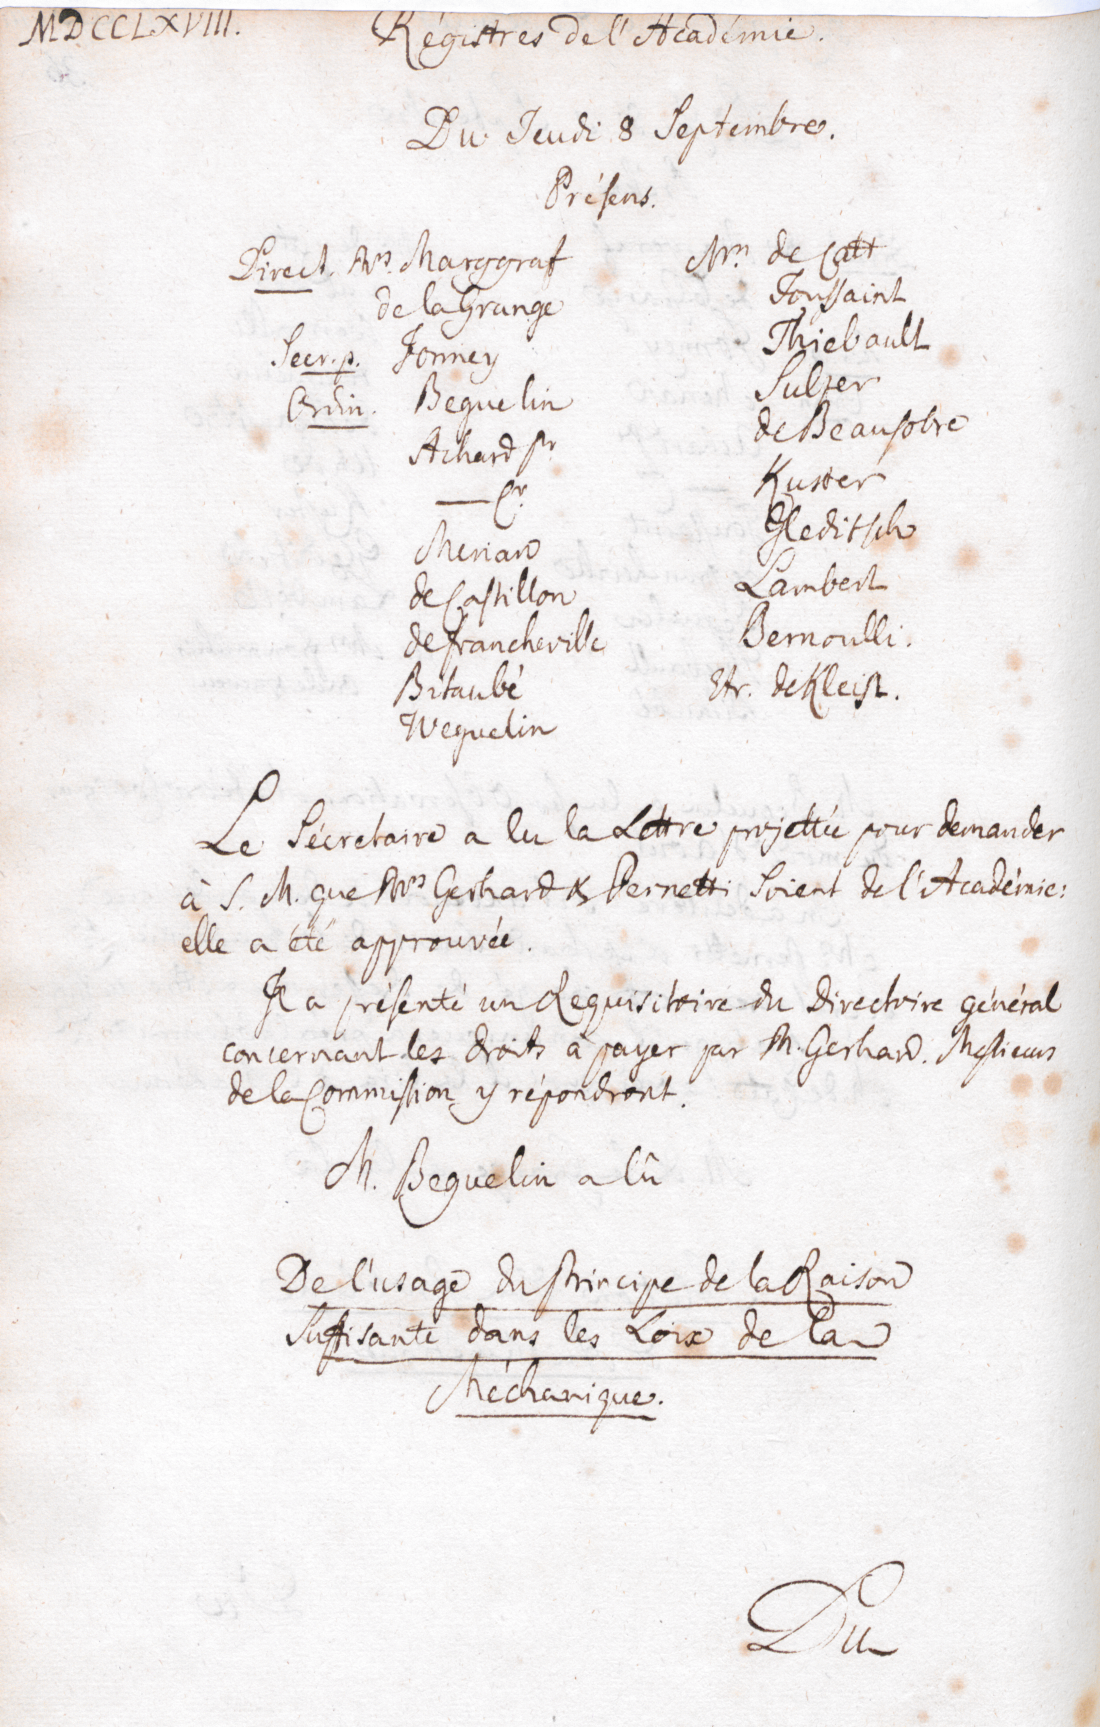 MDCCLXVIII.
Régistres de l'Académie.
Du Jeudi 8 Septembre.
Présens.
Direct. Mrs. Marggraf
de la Grange
Secr. p. Formey
Ordin. Beguelin
Achard Pr
— Cr
Merian
de Castillon
de francheville
Bitaubé
Weguelin
Mrs. de Catt
Toussaint
Thiebault
Sulzer
de Beausobre
Kuster
Gleditsch
Lambert
Bernoulli.
Etr. de Kleist.
Le Sécretaire a lu la Lettre projettée pour demander
à S. M. que Mrs Gerhard & Pernetti soient de l'Académie:
elle a été approuvée.
Il a présenté un Requisitoire du Directoire général
concernant les droits à payer par M. Gerhard. Messieurs
de la Commission y répondront.
M. Beguelin a lû
De l'usage du Principe de la Raison
Suffisante dans les Loix de la
Méchanique.
Du